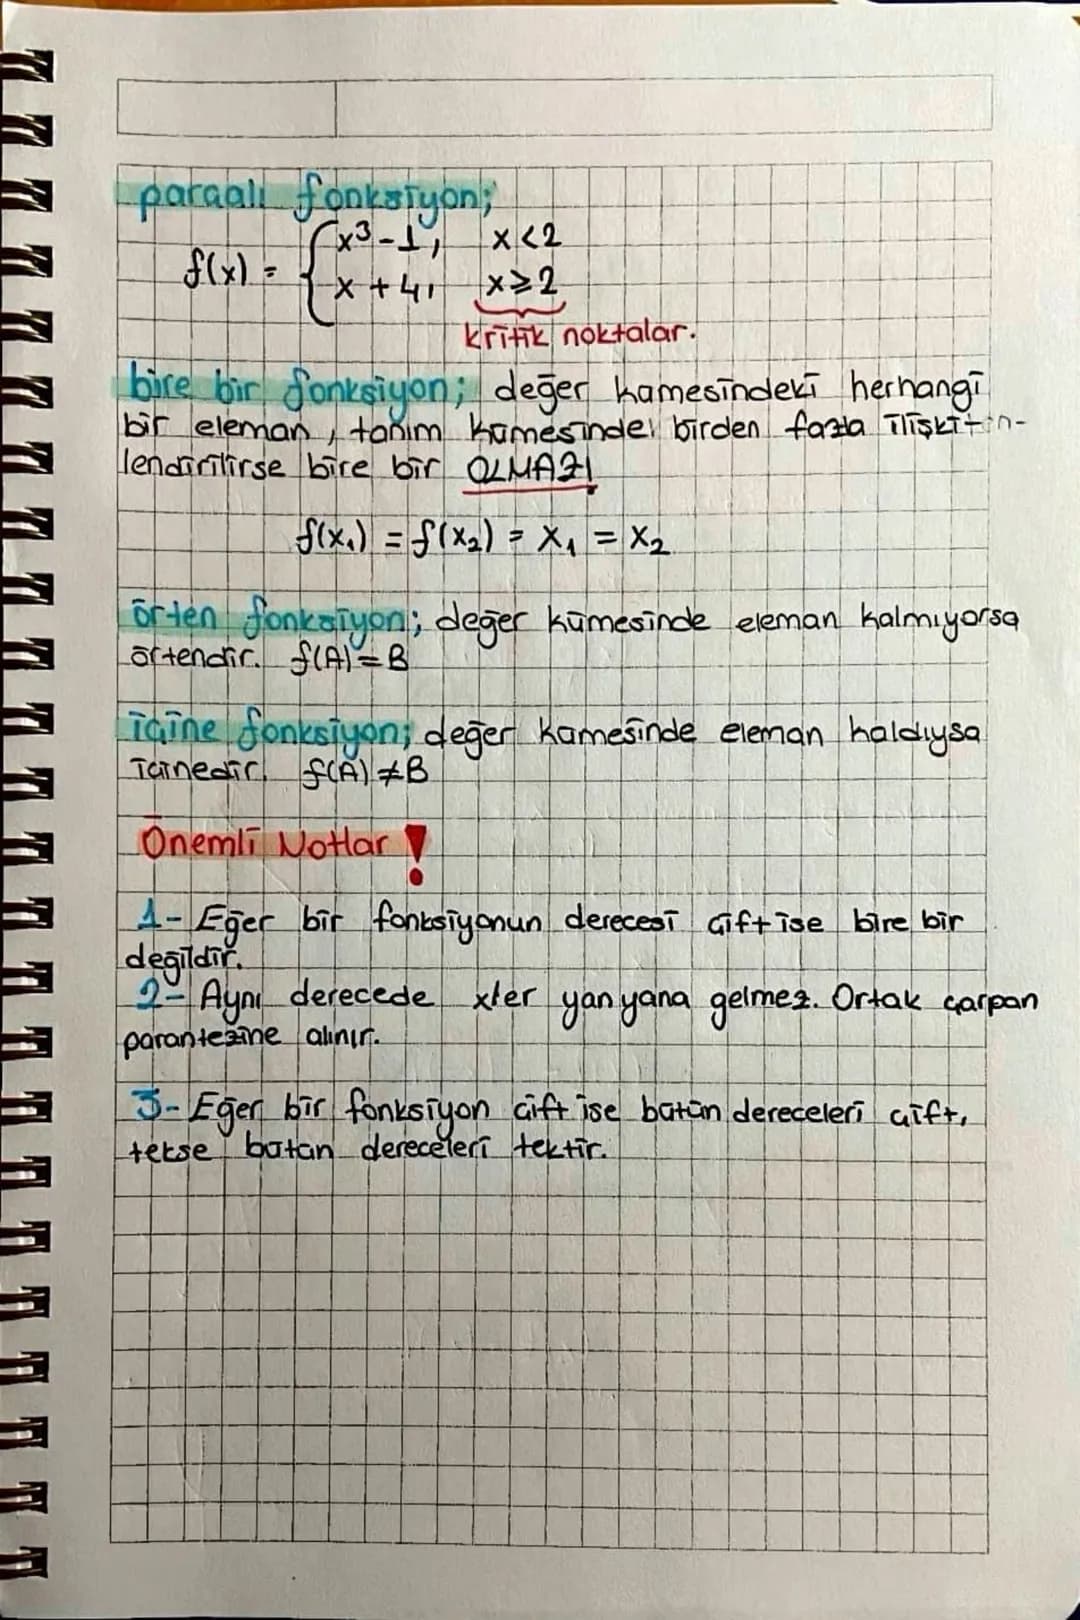 parçalı fonksiyon;
f(x) = { x³ - 1, x < 2
x + 4, x ≥ 2
kritik noktalar.
bire bir fonksiyon; değer kümesindeki herhangi
bir eleman, tanım kümesinde birden fazla
lendirilirse bire bir OLMAZ!
f(x₁) = f(x₂) = x₁ = x₂
örten fonksiyon; değer kümesinde eleman kalmıyorsa
örtendir. f(A) = B
içine fonksiyon; değer kümesinde eleman kaldıysa
içinedir. f(A) ≠ B
Önemli Notlar !
1- Eğer bir fonksiyonun derecesi çift ise bire bir
değildir.
2- Aynı derecede xler yan yana gelmez. Ortak çarpan
parantezine alınır.
3- Eğer bir fonksiyon çift ise bütün dereceleri çift,
tekse bütün dereceleri tektir.